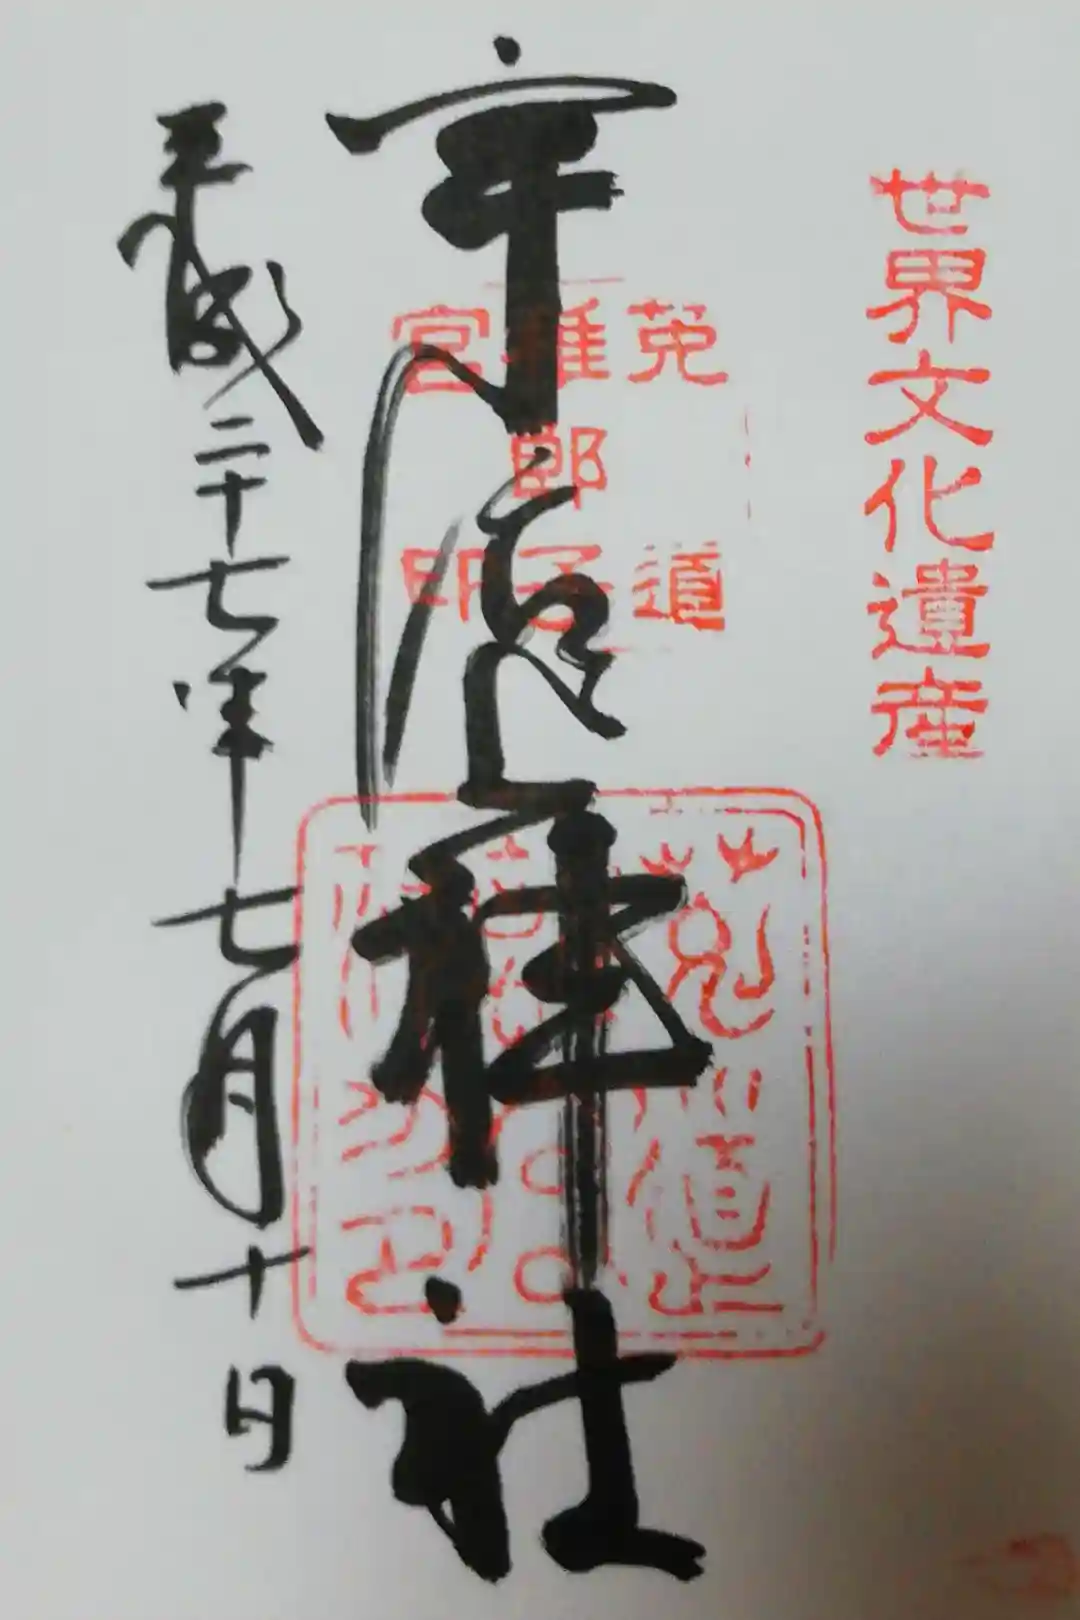 世界文化遺産
宇治神社
菟道
稚郎子
宮印
平成二十七年七月十日